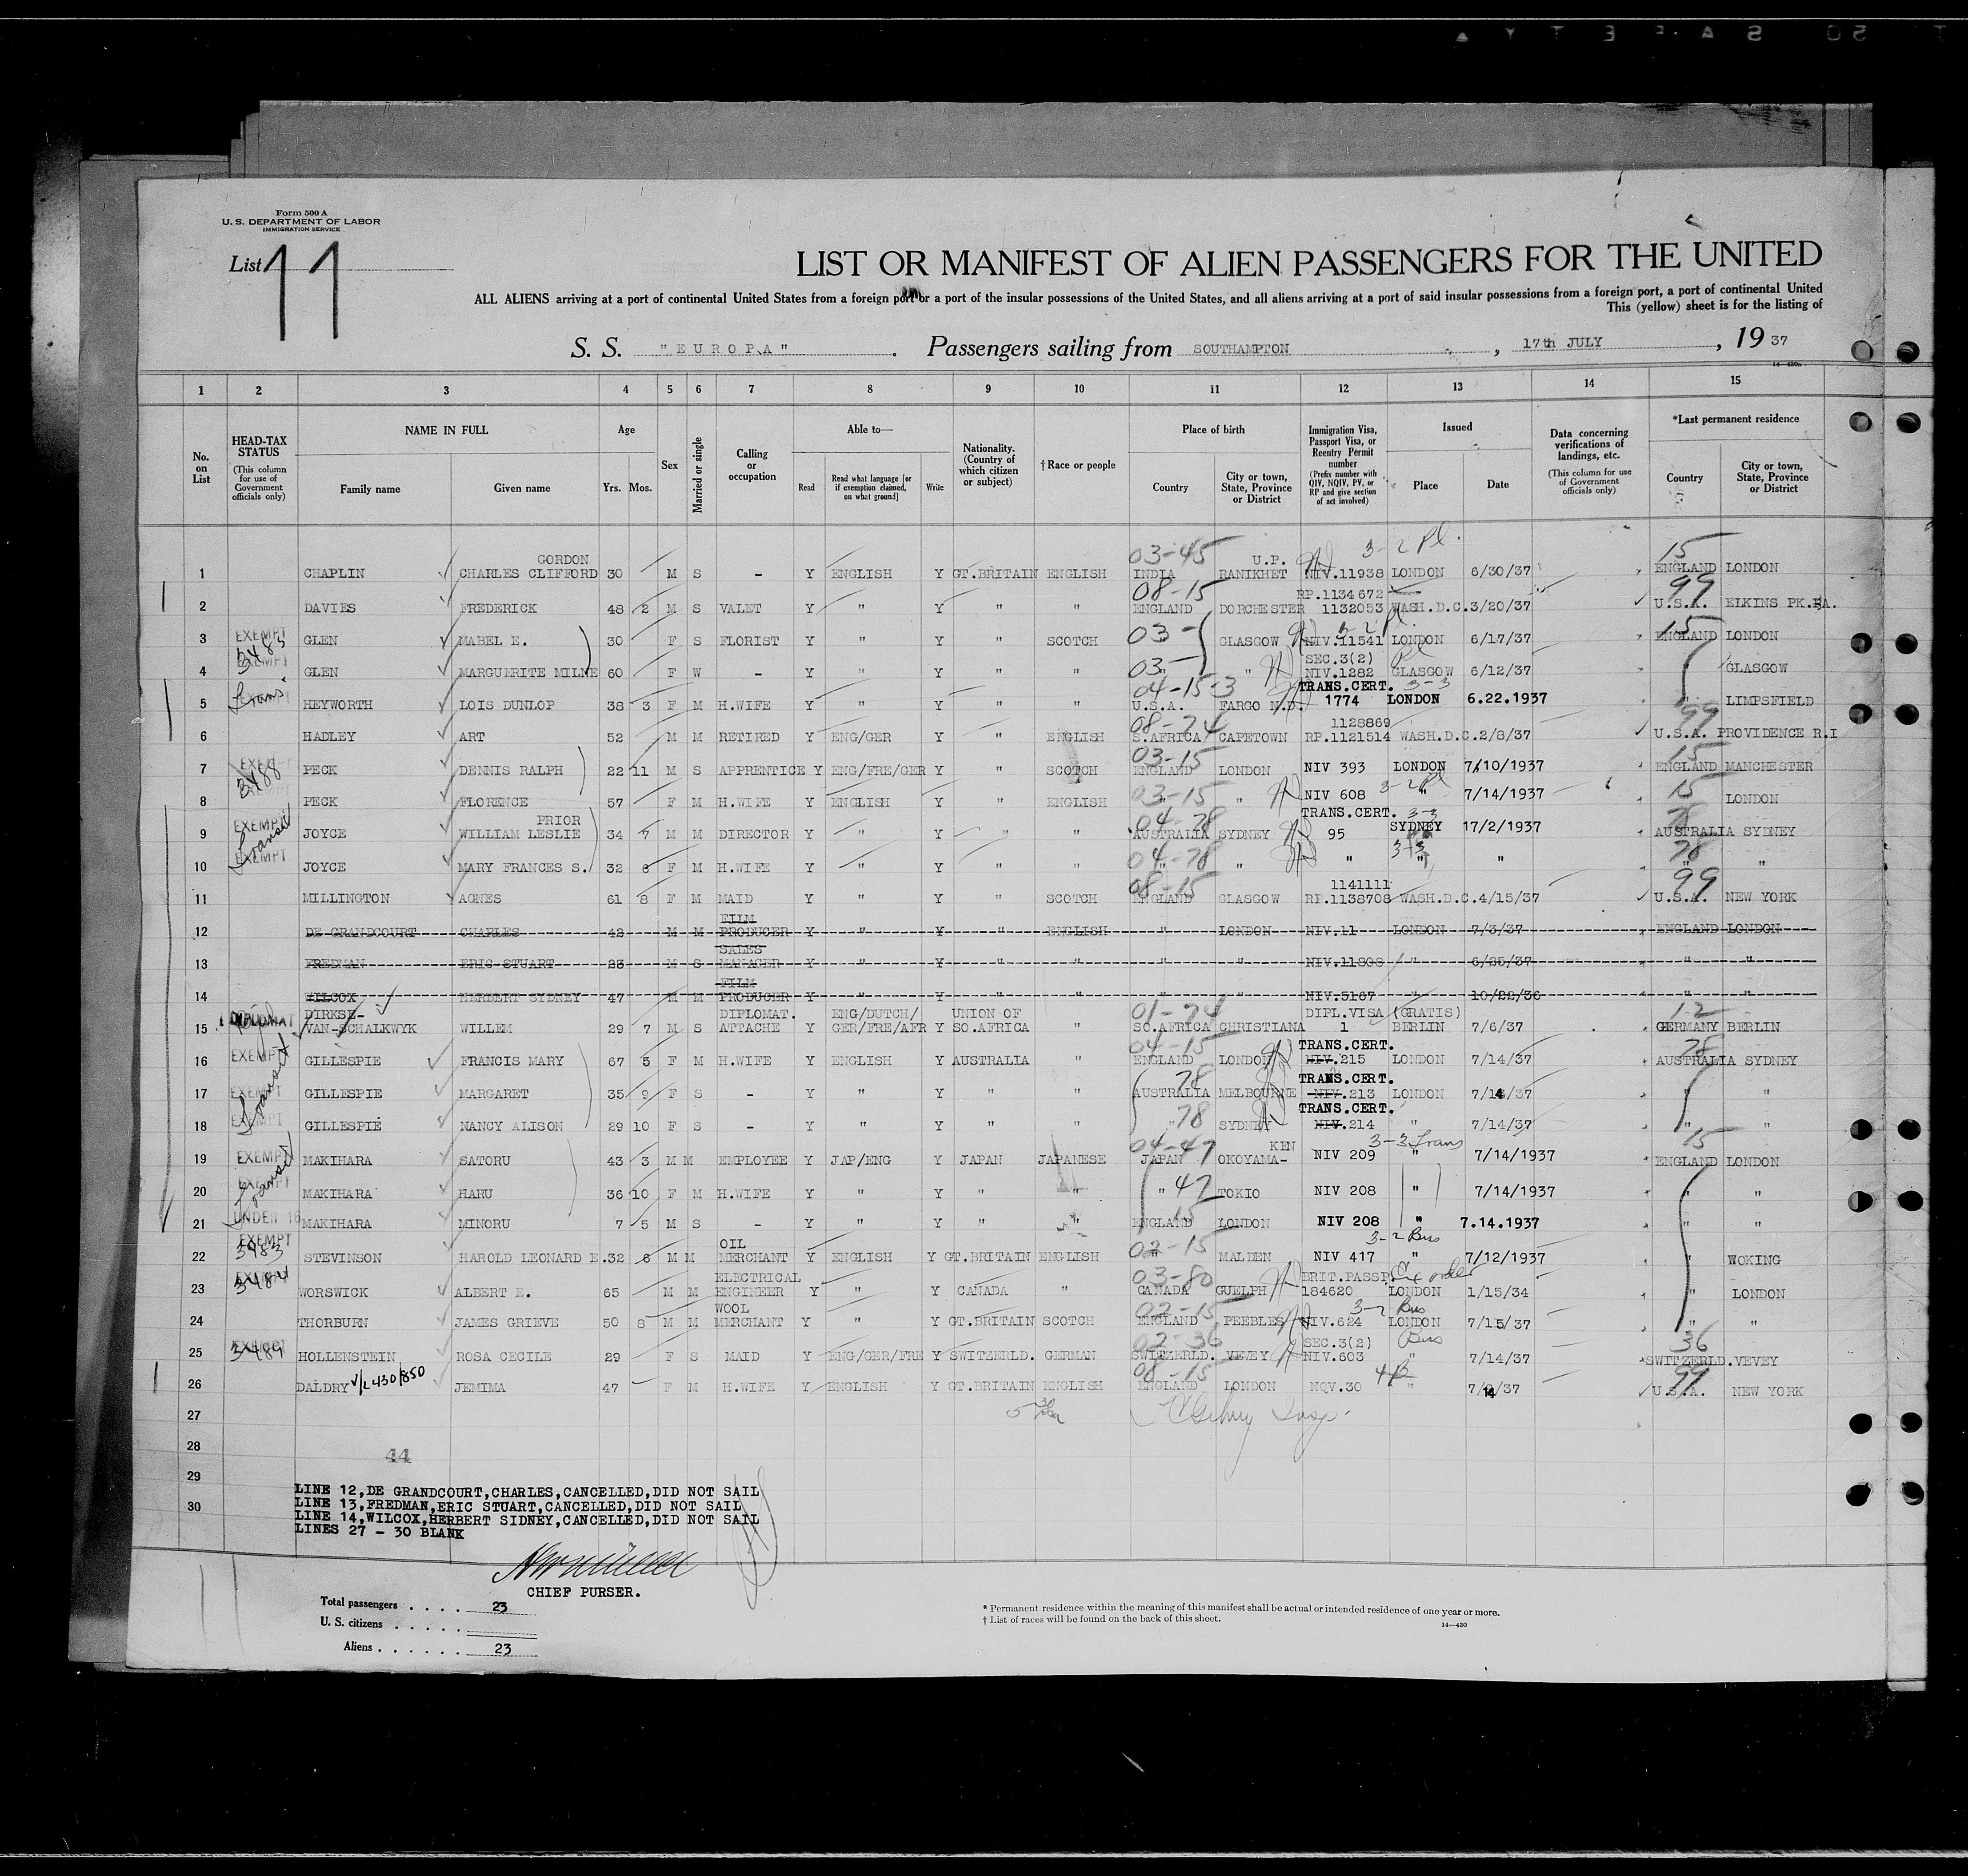 Form 500 A
U. S. DEPARTMENT OF LABOR
IMMIGRATION SERVICE
List 11
LIST OR MANIFEST OF ALIEN PASSENGERS FOR THE UNITED
ALL ALIENS arriving at a port of continental United States from a foreign port or a port of the insular possessions of the United States, and all aliens arriving at a port of said insular possessions from a foreign port, a port of continental United
This (yellow) sheet is for the listing of
S. S. "EUROPA" . Passengers sailing from SOUTHAMPTON , 17th JULY , 19 37
14—430a
1 2 3 4 5 6 7 8 9 10 11 12 13 14 15
No. on List
HEAD-TAX STATUS (This column for use of Government officials only)
NAME IN FULL Family name Given name
Age Yrs. Mos.
Sex
Married or single
Calling or occupation
Able to— Read Read what language [or if exemption claimed, on what ground] Write
Nationality. (Country of which citizen or subject)
†Race or people
Place of birth Country City or town, State, Province or District
Immigration Visa, Passport Visa, or Reentry Permit number (Prefix number with QIV, NQIV, PV, or RP and give section of act involved)
Issued Place Date
Data concerning verifications of landings, etc. (This column for use of Government officials only)
*Last permanent residence Country City or town, State, Province or District
GORDON 03-45 U.P. 3-2 Pl. 15
1 CHAPLIN CHARLES CLIFFORD 30 M S - Y ENGLISH Y GT.BRITAIN ENGLISH INDIA RANIKHET NIV.11938 LONDON 6/30/37 ENGLAND LONDON
08-15 RP.1134672 99
2 DAVIES FREDERICK 48 2 M S VALET Y " Y " " ENGLAND DORCHESTER 1132053 WASH.D.C. 3/20/37 U.S.A. ELKINS PK.PA.
EXEMPT 3483 03- 3-2 Pl. 15
3 GLEN MABEL E. 30 F S FLORIST Y " Y " SCOTCH GLASGOW NIV.11541 LONDON 6/17/37 ENGLAND LONDON
EXEMPT 03- SEC.3(2) Pl
4 GLEN MARGUERITE MILNE 60 F W - Y " Y " " " " NIV.1282 GLASGOW 6/12/37 GLASGOW
Trans. EXEMPT 04-15-3 TRANS.CERT. 3-3
5 HEYWORTH LOIS DUNLOP 38 3 F M H.WIFE Y " Y " " U.S.A. FARGO N.D. 1774 LONDON 6.22.1937 " LIMPSFIELD
08-74 1128869 99
6 HADLEY ART 52 M M RETIRED Y ENG/GER Y " ENGLISH S.AFRICA CAPETOWN RP.1121514 WASH.D.C. 2/8/37 U.S.A. PROVIDENCE R.I
EXEMPT 3488 03-15 15
7 PECK DENNIS RALPH 22 11 M S APPRENTICE Y ENG/FRE/GER Y " SCOTCH ENGLAND LONDON NIV 393 LONDON 7/10/1937 ENGLAND MANCHESTER
03-15 3-2 Pl 15
8 PECK FLORENCE 57 F M H.WIFE Y ENGLISH Y " ENGLISH " " NIV 608 " 7/14/1937 LONDON
EXEMPT Transit PRIOR 04-78 TRANS.CERT. 3-3 78
9 JOYCE WILLIAM LESLIE 34 7 M M DIRECTOR Y " Y " " AUSTRALIA SYDNEY 95 SYDNEY 17/2/1937 AUSTRALIA SYDNEY
EXEMPT 04-78 3-3 78
10 JOYCE MARY FRANCES S. 32 6 F M H.WIFE Y " Y " " " " " " " " "
08-15 1141111 99
11 MILLINGTON AGNES 61 8 F M MAID Y " Y " SCOTCH ENGLAND GLASGOW RP.1138708 WASH.D.C. 4/15/37 U.S.A. NEW YORK
FILM
12 DE GRANDCOURT CHARLES 42 M M PRODUCER Y " Y " ENGLISH " LONDON NIV.11 LONDON 7/3/37 ENGLAND LONDON
SALES
13 FREDMAN ERIC STUART 23 M S MANAGER Y " Y " " " " NIV.11808 " 6/25/37 " "
FILM
14 WILCOX HERBERT SYDNEY 47 M M PRODUCER Y " Y " " " " NIV.5167 " 10/22/36 " "
DIPLOMAT DIRKSE- DIPLOMAT. ENG/DUTCH/ UNION OF 01-74 DIPL.VISA (GRATIS) 12
15 VAN-SCHALKWYK WILLEM 29 7 M S ATTACHE Y GER/FRE/AFR Y SO.AFRICA " SO.AFRICA CHRISTIANA 1 BERLIN 7/6/37 GERMANY BERLIN
EXEMPT 04-15 TRANS.CERT. 78
16 GILLESPIE FRANCIS MARY 67 5 F M H.WIFE Y ENGLISH Y AUSTRALIA " ENGLAND LONDON NIV.215 LONDON 7/14/37 AUSTRALIA SYDNEY
EXEMPT Transit 78 TRANS.CERT.
17 GILLESPIE MARGARET 35 9 F S - Y " Y " " AUSTRALIA MELBOURNE NIV.213 LONDON 7/14/37 " "
EXEMPT 78 TRANS.CERT.
18 GILLESPIE NANCY ALISON 29 10 F S - Y " Y " " " SYDNEY NIV.214 " 7/14/37 " "
EXEMPT 04-47 KEN 3-3 Trans 15
19 MAKIHARA SATORU 43 3 M M EMPLOYEE Y JAP/ENG Y JAPAN JAPANESE JAPAN OKOYAMA- NIV 209 " 7/14/1937 ENGLAND LONDON
EXEMPT Transit 47
20 MAKIHARA HARU 36 10 F M H.WIFE Y " Y " " " TOKIO NIV 208 " 7/14/1937 " "
UNDER 16 15
21 MAKIHARA MINORU 7 5 M S - Y " Y " " ENGLAND LONDON NIV 208 " 7.14.1937 " "
EXEMPT 3483 OIL 02-15 3-2 Bus
22 STEVINSON HAROLD LEONARD E. 32 6 M M MERCHANT Y ENGLISH Y GT.BRITAIN ENGLISH " MALDEN NIV 417 " 7/12/1937 " WOKING
EXEMPT 3484 ELECTRICAL 03-80 BRIT.PASSP.
23 WORSWICK ALBERT E. 65 M M ENGINEER Y " Y CANADA " CANADA GUELPH 184620 LONDON 1/15/34 " LONDON
WOOL 02-15 3-2 Bus
24 THORBURN JAMES GRIEVE 50 8 M M MERCHANT Y " Y GT.BRITAIN SCOTCH ENGLAND PEEBLES NIV.624 LONDON 7/15/37 " "
EXEMPT 3489 02-36 SEC.3(2) Bus 36
25 HOLLENSTEIN ROSA CECILE 29 F S MAID Y ENG/GER/FRE Y SWITZERLD. GERMAN SWITZERLD. VEVEY NIV.603 " 7/14/37 SWITZERLD. VEVEY
08-15 99
26 DALDRY V/L 430/850 JEMIMA 47 F M H.WIFE Y ENGLISH Y GT.BRITAIN ENGLISH ENGLAND LONDON NQV.30 " 7/14/37 U.S.A. NEW YORK
27
28
44
29
30
LINE 12,DE GRANDCOURT,CHARLES,CANCELLED,DID NOT SAIL
LINE 13,FREDMAN,ERIC STUART,CANCELLED,DID NOT SAIL
LINE 14,WILCOX,HERBERT SIDNEY,CANCELLED,DID NOT SAIL
LINES 27 - 30 BLANK
CHIEF PURSER.
Total passengers . . . . 23
U. S. citizens . . . . .
Aliens . . . . . . 23
* Permanent residence within the meaning of this manifest shall be actual or intended residence of one year or more.
† List of races will be found on the back of this sheet.
14—430